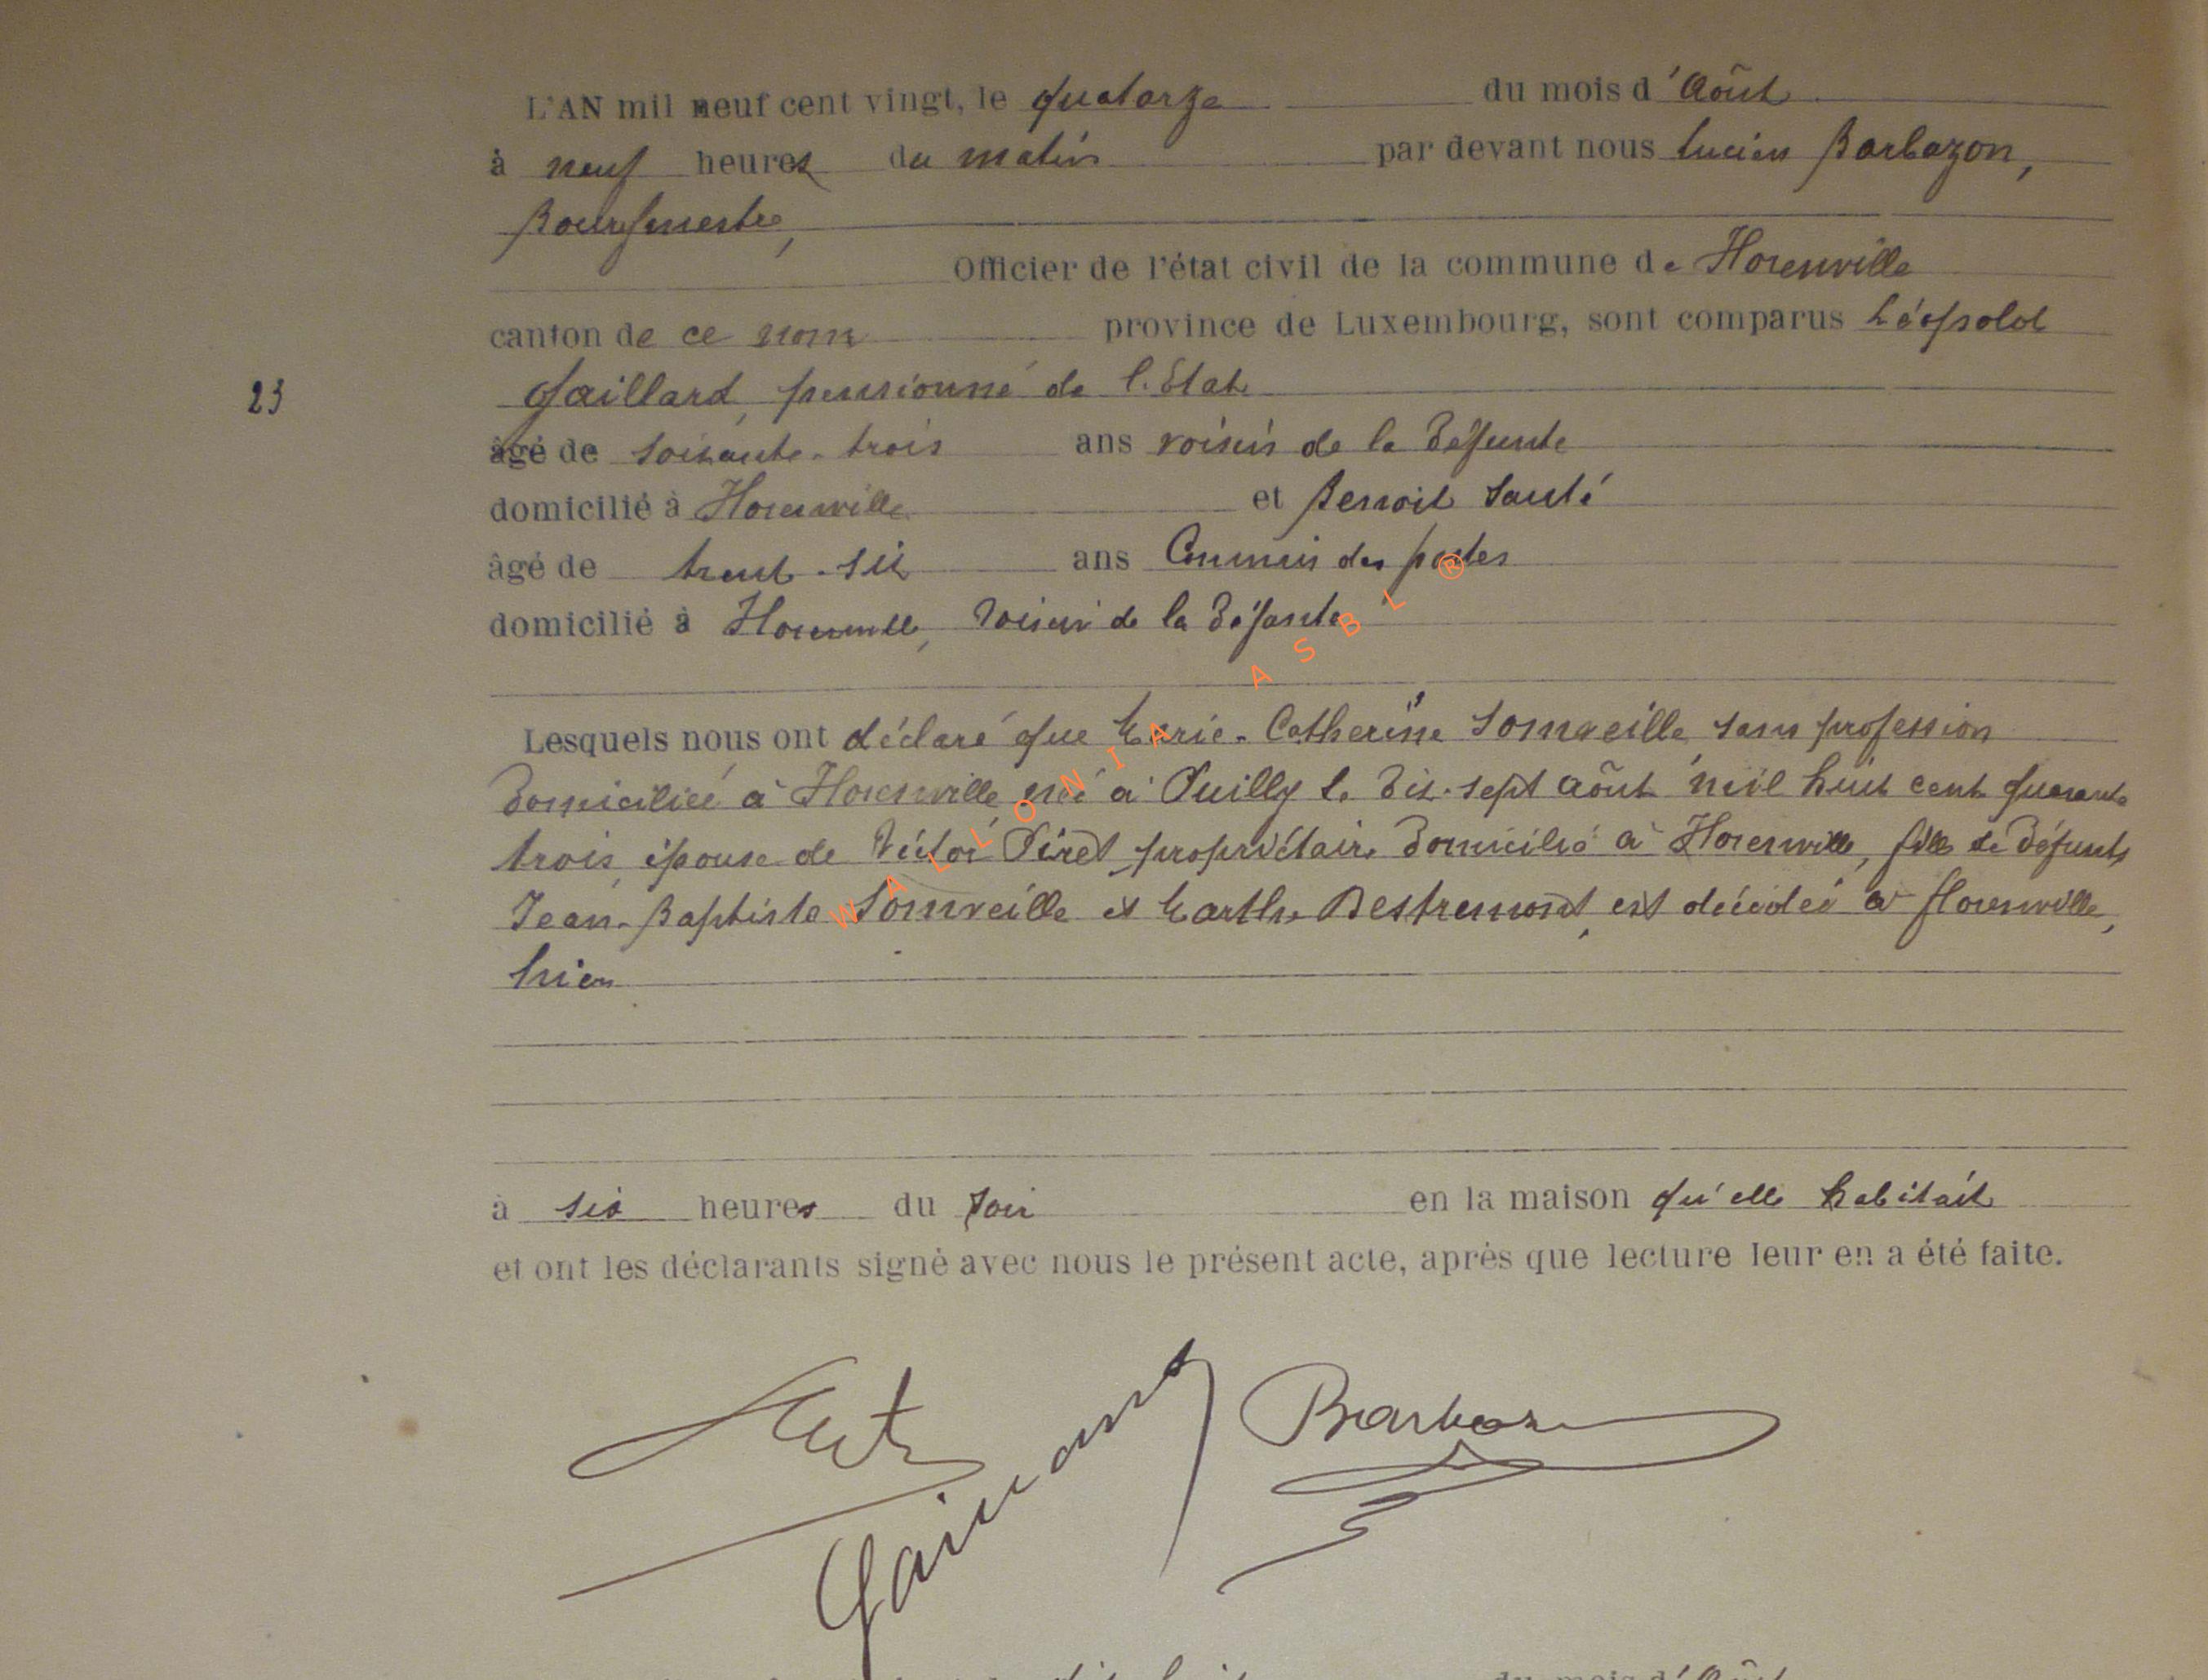 L'AN mil neuf cent vingt, le quatorze du mois d'Août
à neuf heures du matin par devant nous Lucien Barbazon,
Bourgmestre,
Officier de l'état civil de la commune de Florenville
canton de ce nom province de Luxembourg, sont comparus Léopold
23
Gaillard, pensionné de l'Etat
âgé de soixante-trois ans voisin de la défunte
domicilié à Florenville et Benoit
âgé de trent-six ans Commis des postes
domicilié à Florenville, voisin de la défunte
Lesquels nous ont déclaré que Marie-Catherine Somveille sans profession
domiciliée à Florenville née à Puilly le dix-sept août mil huit cent quarante
trois, épouse de Victor Piret propriétaire domicilié à Florenville, fille de défunts
Jean-Baptiste Somveille et Marthe Destremont, est décédée à Florenville,
hier
à six heures du soir en la maison qu'elle habitait
et ont les déclarants signé avec nous le présent acte, après que lecture leur en a été faite.
Barbazon
WALLONIA ASBL ®
du mois d'Août